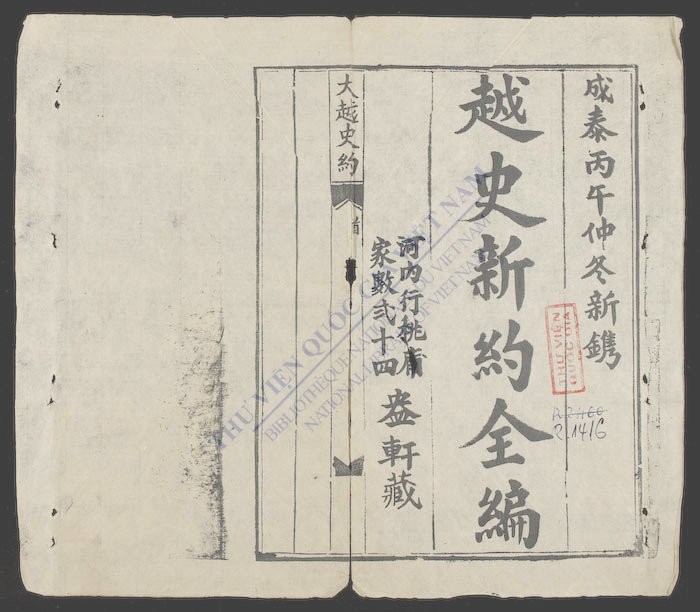 成泰丙午仲冬新鐫
越史新約全編
河內行桃庯
家數弍十四
盎軒藏
大越史約
首
THƯ VIỆN QUỐC GIA VIỆT NAM
BIBLIOTHÈQUE NATIONALE DU VIETNAM
NATIONAL LIBRARY OF VIETNAM
THƯ VIỆN
QUỐC GIA
R.1416